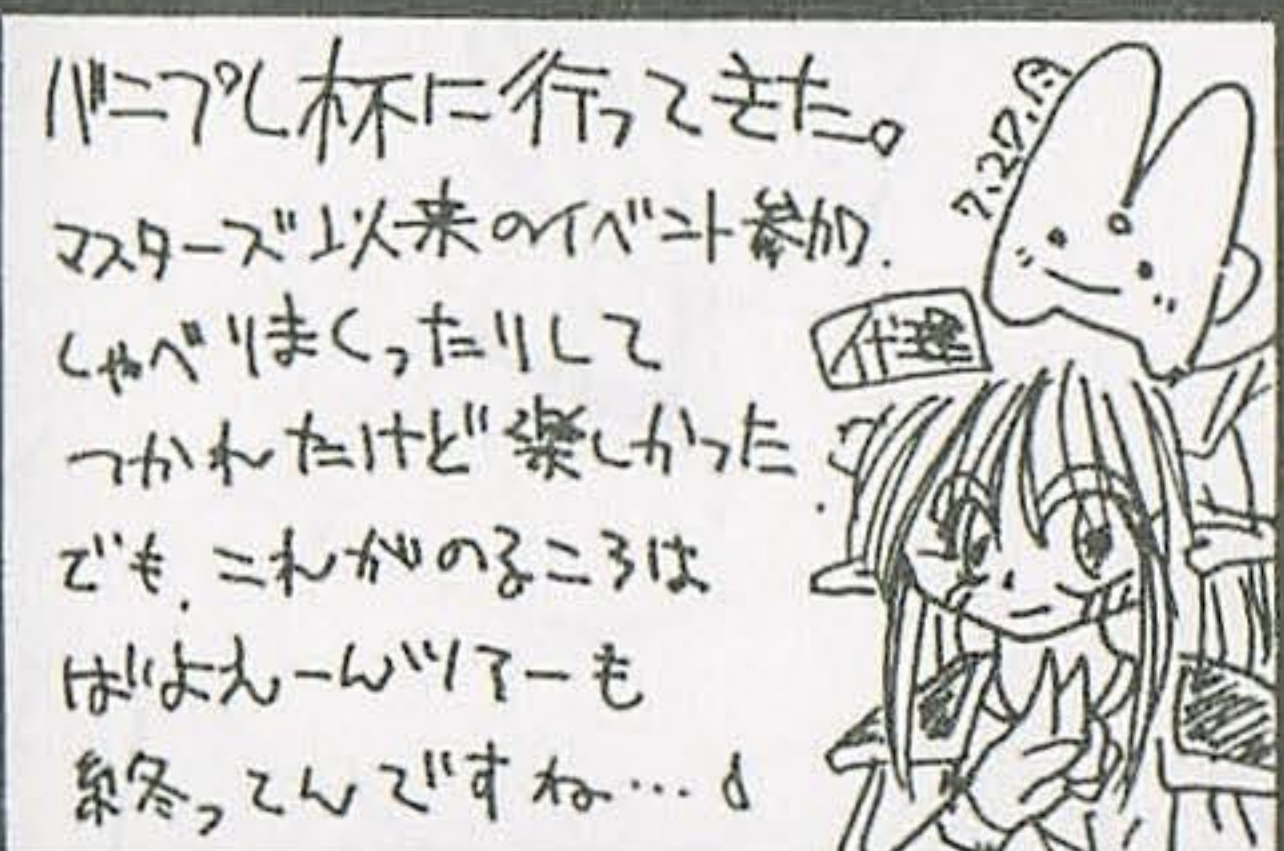 バニプレ杯に行ってきた。
マスターズ以来のイベント参加.
しゃべりまくったりして
つかれたけど楽しかった.
でも、これがのるころは
ばよえ〜んツアーも
終ってんですね…
7.27.月
代理